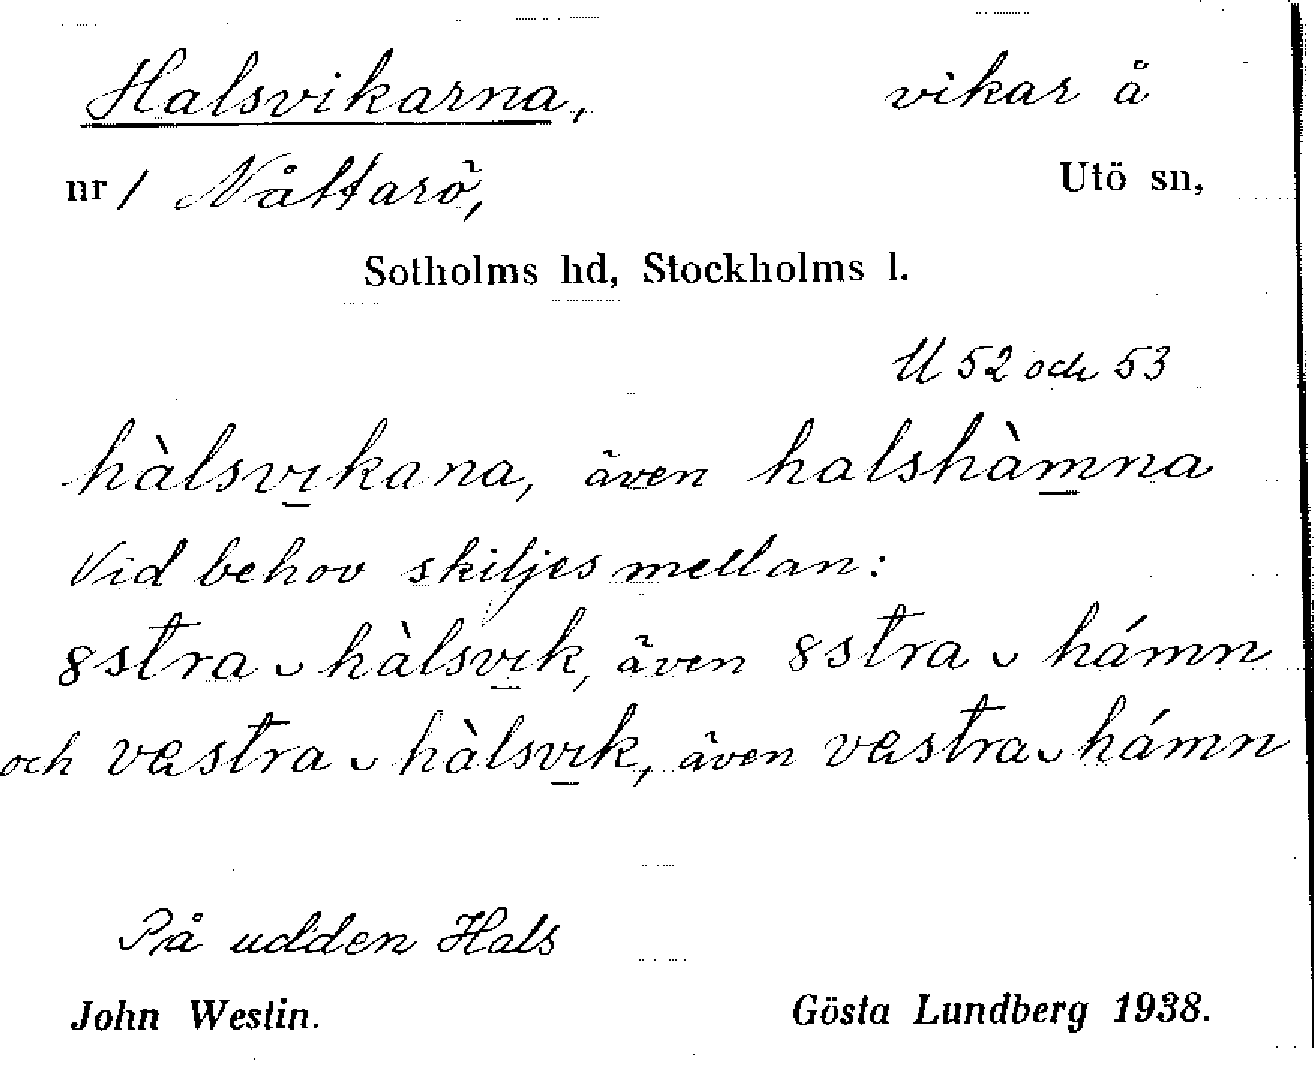 Halsvikarna, vikar å
nr 1 Nåttarö, Utö sn,
Sotholms hd, Stockholms l.
U 52 och 53
hàlsvı̱kana, även halshàm̱na
Vid behov skiljes mellan:
8stra ᴗ hàlsvı̱k, även 8stra ᴗ hámn
och væstra ᴗ hàlsvı̱k, även væstra ᴗ hámn
På udden Hals
John Westin. Gösta Lundberg 1938.